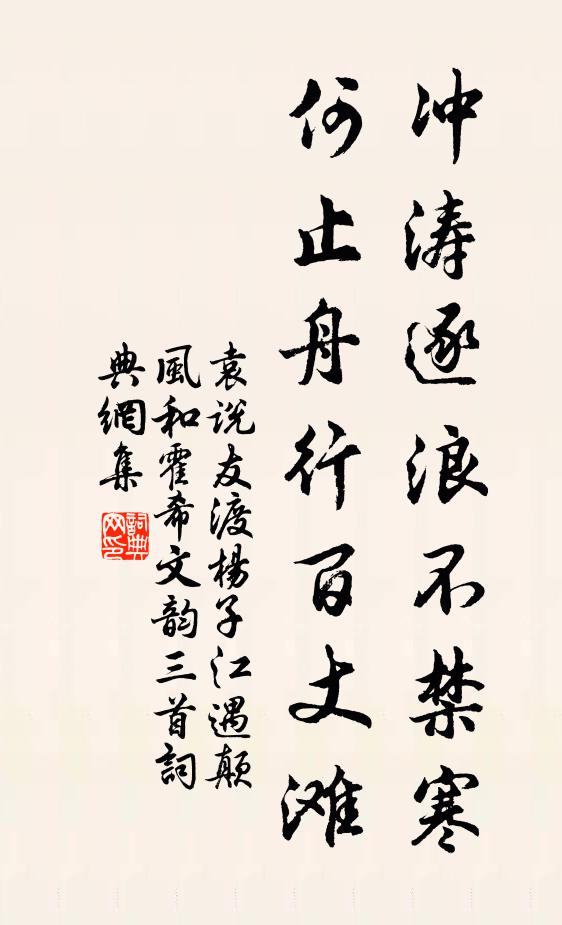 冲涛逐浪不禁寒
何止舟行百丈滩
袁说友渡楊子江遇颠
風和霍希文韵三首詞
典網集
詞典网印